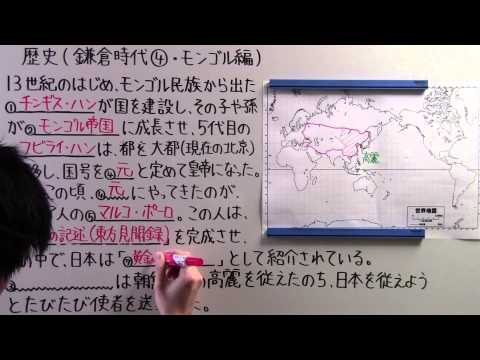 歴史(鎌倉時代④・モンゴル編)
13世紀のはじめ、モンゴル民族から出た
①チンギス・ハンが国を建設し、その子や孫
が②モンゴル帝国に成長させ、5代目の
フビライ・ハンは、都を大都(現在の北京)
し、国号を④元と定めて皇帝になった。
この頃、④元にやってきたのが、
人の⑤マルコ・ポーロ。この人は、
の記述(東方見聞録)を完成させ、
の中で、日本は「⑦黄金」として紹介されている。
③は朝の高麗を従えたのち、日本を従えよう
とたびたび使者を送た。
高麗
世界地図